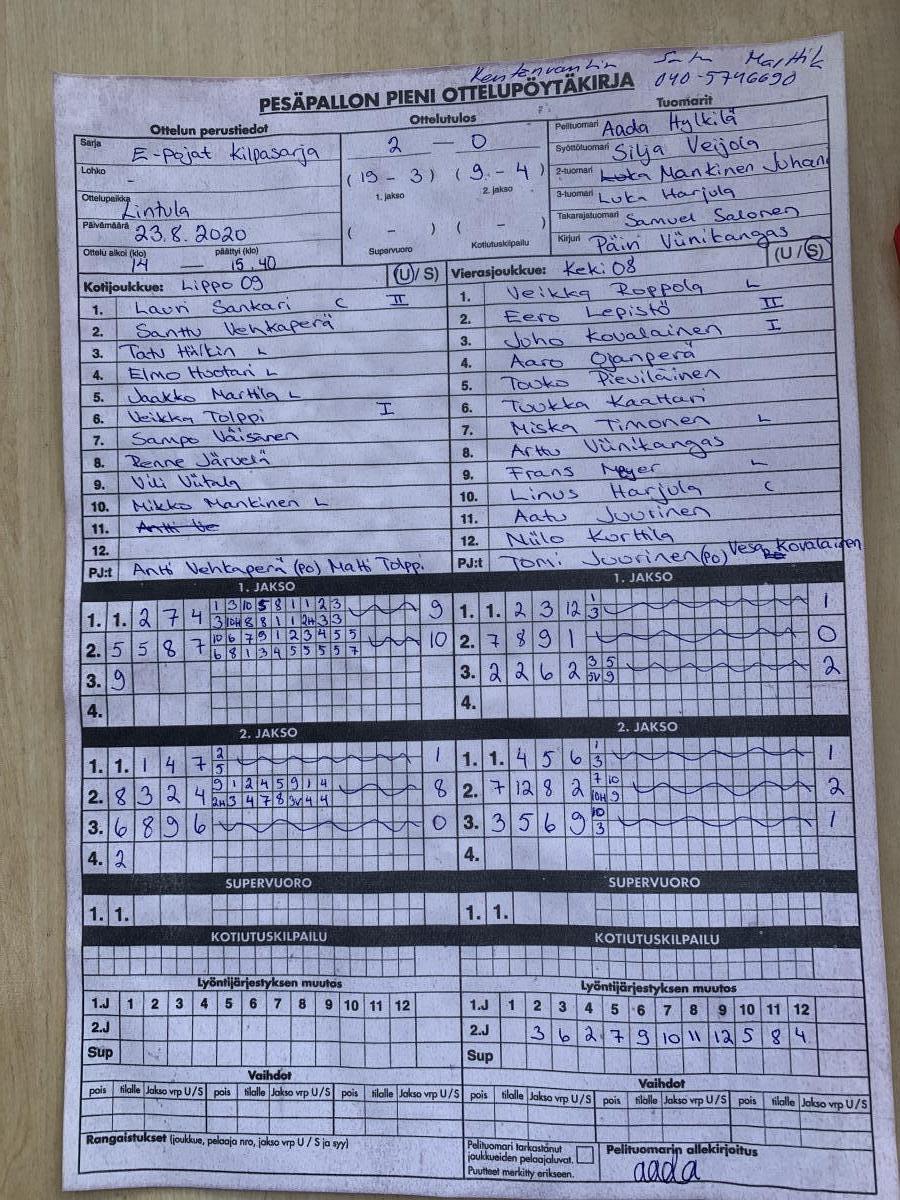 Kentanvantin Satu Marttila
040-5746690
PESÄPALLON PIENI OTTELUPÖYTÄKIRJA
Ottelun perustiedot Ottelutulos Tuomarit
Sarja E-Pojat Kilpasarja
Lohko -
Ottelupaikka Lintula
Päivämäärä 23.8.2020
Ottelu alkoi (klo) päättyi (klo)
14 — 15.40
2 — 0
(19 - 3) (9 - 4)
1. jakso 2. jakso
( - ) ( - )
Supervuoro Kotiutuskilpailu
Pelituomari Aada Hylkilä
Syöttötuomari Silja Veijola
2-tuomari Luka Mankinen Juhan
3-tuomari Luka Harjula
Takarajatuomari Samuel Salonen
Kirjuri Päivi Viinikangas
Kotijoukkue: Lippo 09 (U/S)
1. Lauri Sankari C II
2. Santtu Vehkaperä
3. Tatu Hälkin L
4. Elmo Huotari L
5. Jaakko Marttila L
6. Veikka Tolppi I
7. Sampo Väisänen
8. Renne Järvelä
9. Vili Viitala
10. Mikko Mankinen L
11. Antti Ve
12.
PJ:t Antti Vehkaperä (PO) Matti Tolppi.
Vierasjoukkue: Keki 08 (U/S)
1. Veikka Roppola L
2. Eero Lepistö II
3. Juho Kovalainen I
4. Aaro Ojanperä
5. Touko Pieviläinen
6. Tuukka Kaattari
7. Miska Timonen L
8. Arttu Viinikangas
9. Frans Meyer L
10. Linus Harjula C
11. Aatu Juurinen
12. Niilo Kurttila
PJ:t Tomi Juurinen (PO) Vesa Kovalainen
1. JAKSO
1. 1. 2 7 4 1 3 10 5 8 1 1 2 3 9
3 10H 8 8 1 1 2H 3 3
2. 5 5 8 7 10 6 7 9 1 2 3 4 5 5 10
6 8 1 3 4 5 5 5 5 7
3. 9
4.
1. JAKSO
1. 1. 2 3 12 1 1
3
2. 7 8 9 1 0
3. 2 2 6 2 3 5 2
5V 9
4.
2. JAKSO
1. 1. 1 4 7 2 1
5
2. 8 3 2 4 9 1 2 4 5 9 1 4 8
2H 3 4 7 8 3V 4 4
3. 6 8 9 6 0
4. 2
2. JAKSO
1. 1. 4 5 6 1 1
3
2. 7 12 8 2 7 10 2
10H 9
3. 3 5 6 9 10 1
3
4.
SUPERVUORO
1. 1.
SUPERVUORO
1. 1.
KOTIUTUSKILPAILU
KOTIUTUSKILPAILU
Lyöntijärjestyksen muutos
1.J 1 2 3 4 5 6 7 8 9 10 11 12
2.J
Sup
Lyöntijärjestyksen muutos
1.J 1 2 3 4 5 6 7 8 9 10 11 12
2.J 3 6 2 7 9 10 11 12 5 8 4
Sup
Vaihdot
pois tilalle Jakso vrp U/S pois tilalle Jakso vrp U/S pois tilalle Jakso vrp U/S
Vaihdot
pois tilalle Jakso vrp U/S pois tilalle Jakso vrp U/S pois tilalle Jakso vrp U/S
Rangaistukset (joukkue, pelaaja nro, jakso vrp U / S ja syy)
Pelituomari tarkastanut
joukkueiden pelaajaluvat.
Puutteet merkitty erikseen.
Pelituomarin allekirjoitus
aada